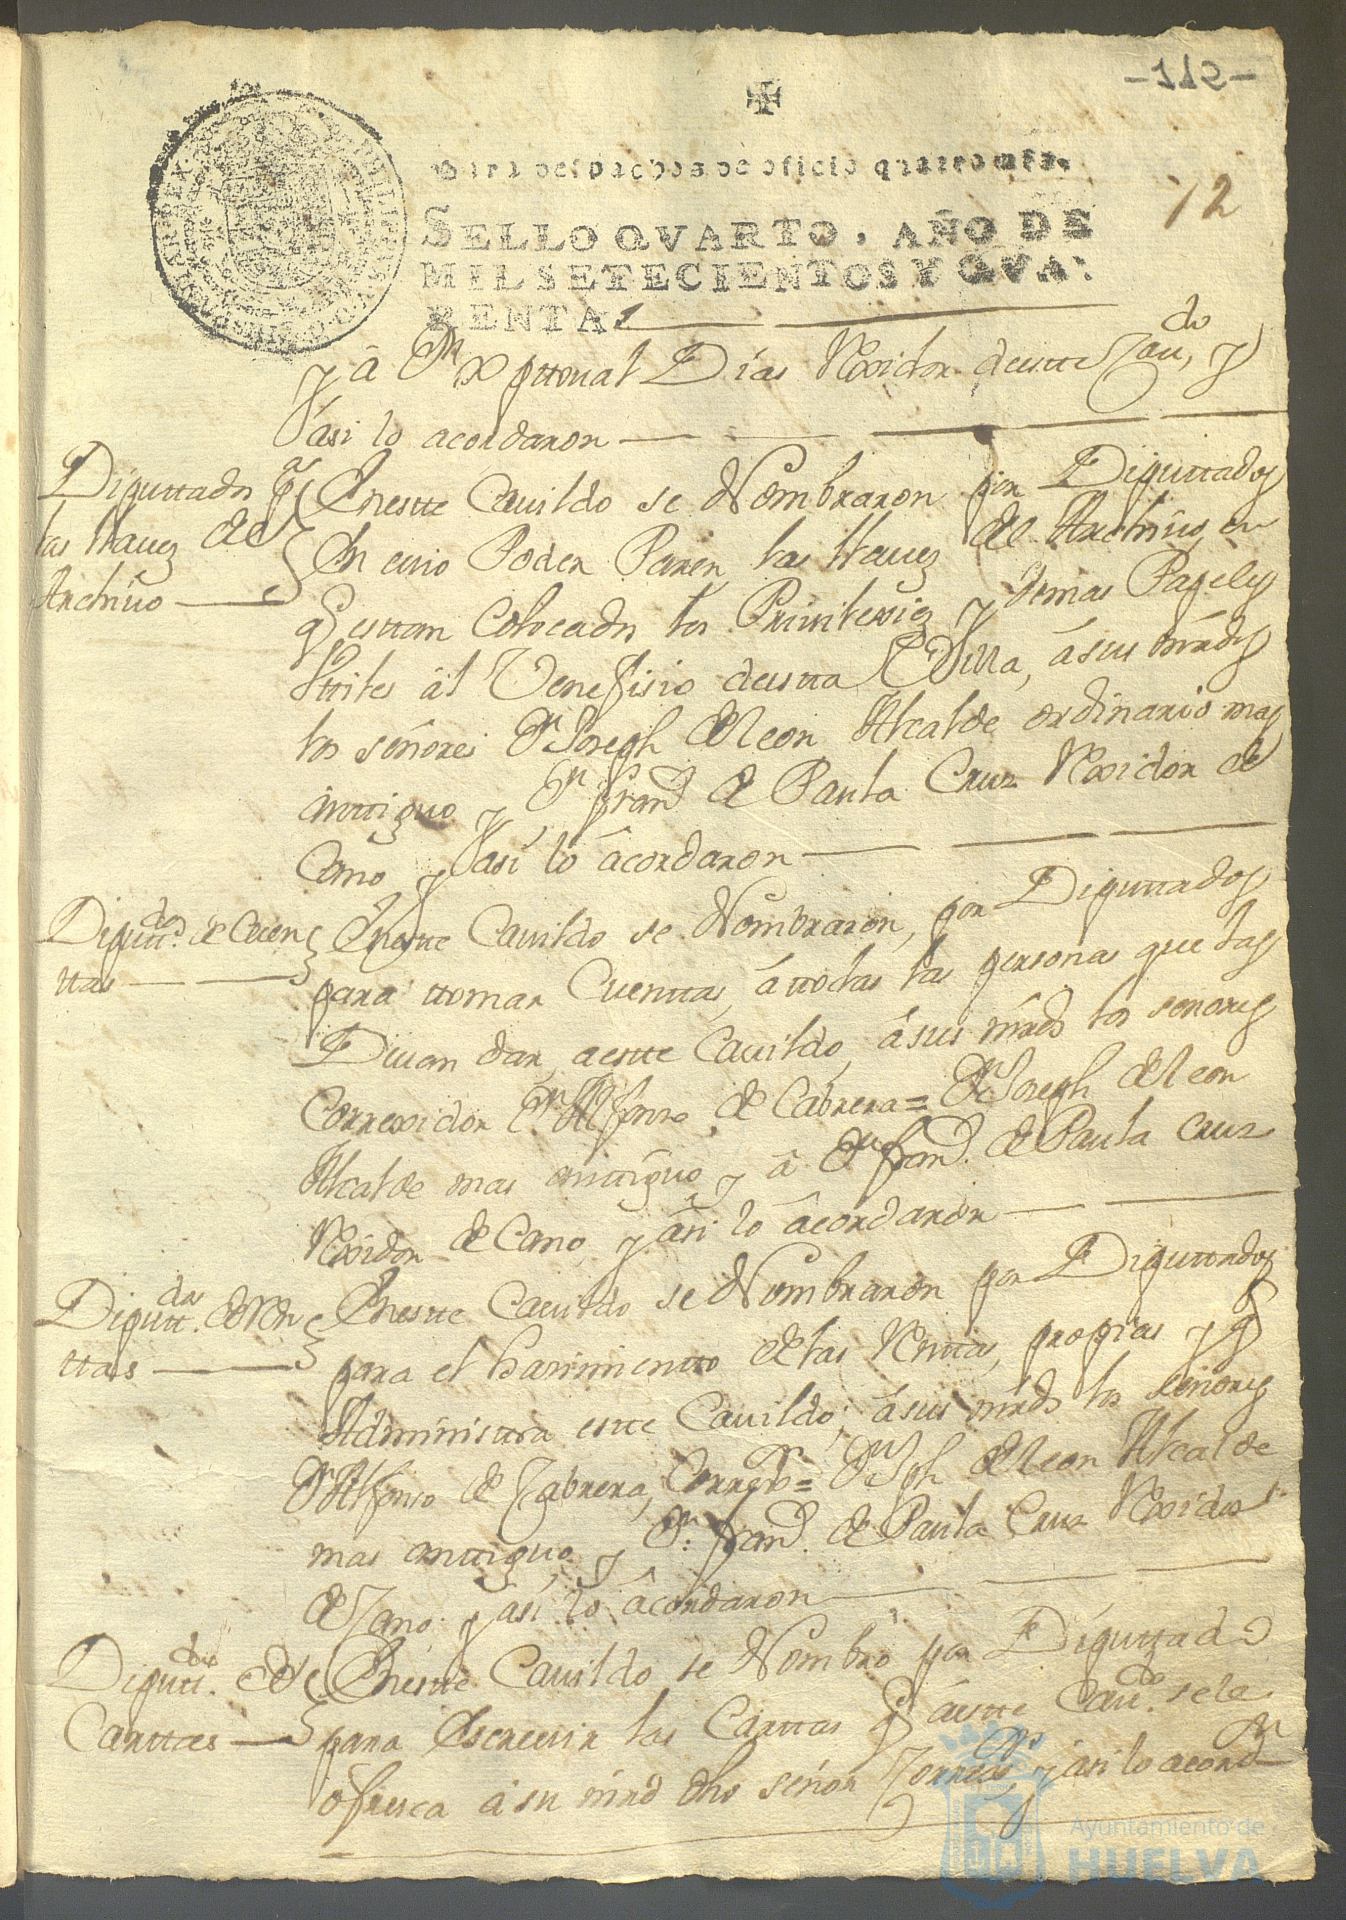 -112-
Para despachos de oficio quatro mrs.
12
SELLO QVARTO, AÑO DE
MIL SETECIENTOS Y QVA-
RENTA.
y â Dn Xpttoual Dias Rexidor deestte Caudo, y
ási lo acordaron
Diputtados pa
las llauez de
Archiuo
Enestte Cauildo se Nombraron por Diputtados
En cuio Poder Paren las llauez de Archiuo en
q esttan Colocados los Priuilexios y demas Papeles
Vttiles ál Venefisio deestta Villa, á sus mrds
los señores Dn Joseph de leon Alcalde ordinario mas
anttiguo y Dn Frando de Paula Cruz Rexidor de
Cano y ási lo âcordaron
Diputtdos de Cuen
ttas
Enestte Cauildo se Nombraron, por Diputtados
para ttomar Cuenttas, á ttodas las personas que las
Deuan dar, a estte Cauildo, á sus mrds los señores
Correxidor Dn Alfonso de Cabrera = Dn Joseph de leon
Alcalde mas anttiguo y â Dn Frando de Paula Cruz
Rexidor de Cano, y ási lo âcordaron
Diputtdos de Ren
ttas
Enestte Cauildo se Nombraron por Diputtados
para el hasimientto de las Renttas, propias y q
Administra estte Cauildo, á sus mrds los señores
Dn Alfonso de Cabrera, Correxor = Dn Jph de leon Alcalde
mas anttiguo, y Dn Frando de Paula Cruz Rexidor
de Cano y ási lo âcordaron
Diputtdos de
Carttas
Enestte Cauildo se Nombró por Diputtado
para Escreuir las Carttas q á estte Caudo se le
ofresca á su mrd dho señor Correxor, y ási lo acordn
Ayuntamiento de
HUELVA